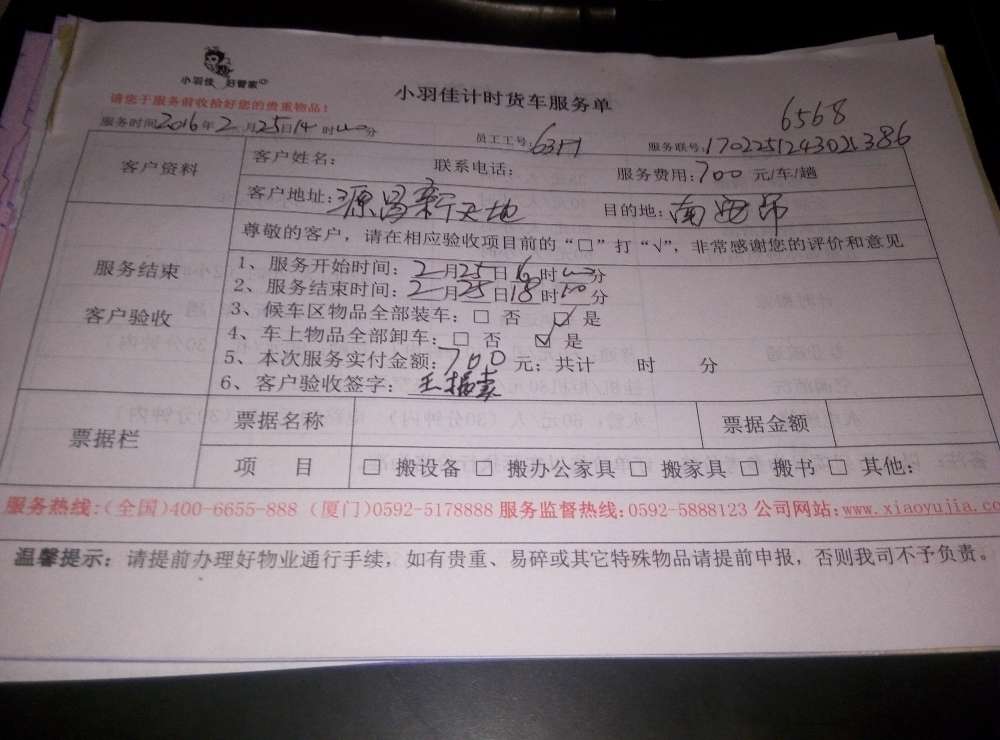 小羽佳 好管家
小羽佳计时货车服务单
6568
请您于服务前收拾好您的贵重物品！
服务时间2016年2月25日14时00分 员工工号: 服务联号:1702251243021386
客户资料 客户姓名: 联系电话: 服务费用:700元/车/趟
客户地址:源昌新天地 目的地:南安市
尊敬的客户，请在相应验收项目前的“□”打“√”，非常感谢您的评价和意见
服务结束
客户验收
1、服务开始时间:2月25日16时00分
2、服务结束时间:2月25日18时00分
3、候车区物品全部装车:□ 否 ☑ 是
4、车上物品全部卸车:□ 否 ☑ 是
5、本次服务实付金额:700元;共计 时 分
6、客户验收签字:
票据栏 票据名称 票据金额
项 目 □ 搬设备 □ 搬办公家具 □ 搬家具 □ 搬书 □ 其他:
服务热线:(全国)400-6655-888 (厦门)0592-5178888 服务监督热线:0592-5888123 公司网站:www.xiaoyujia.co
温馨提示: 请提前办理好物业通行手续，如有贵重、易碎或其它特殊物品请提前申报，否则我司不予负责。